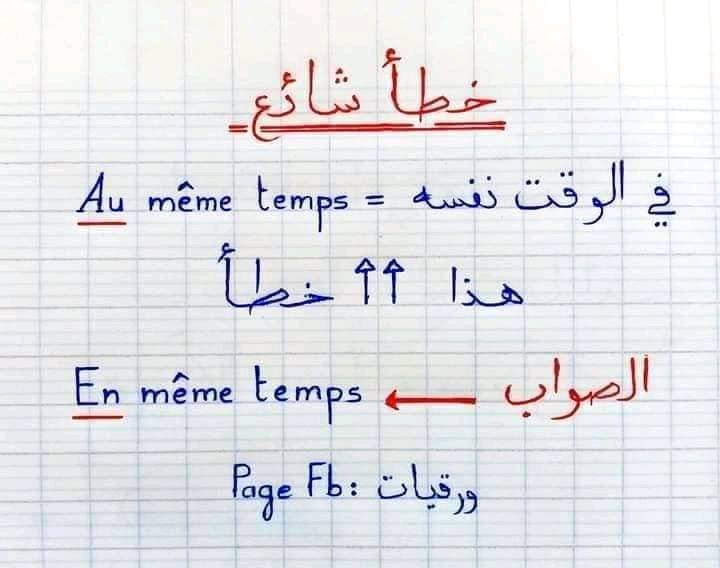 خطأ شائع
Au même temps = في الوقت نفسه
هذا ↑↑ خطأ
En même temps ← الصواب
Page Fb: ورقيات